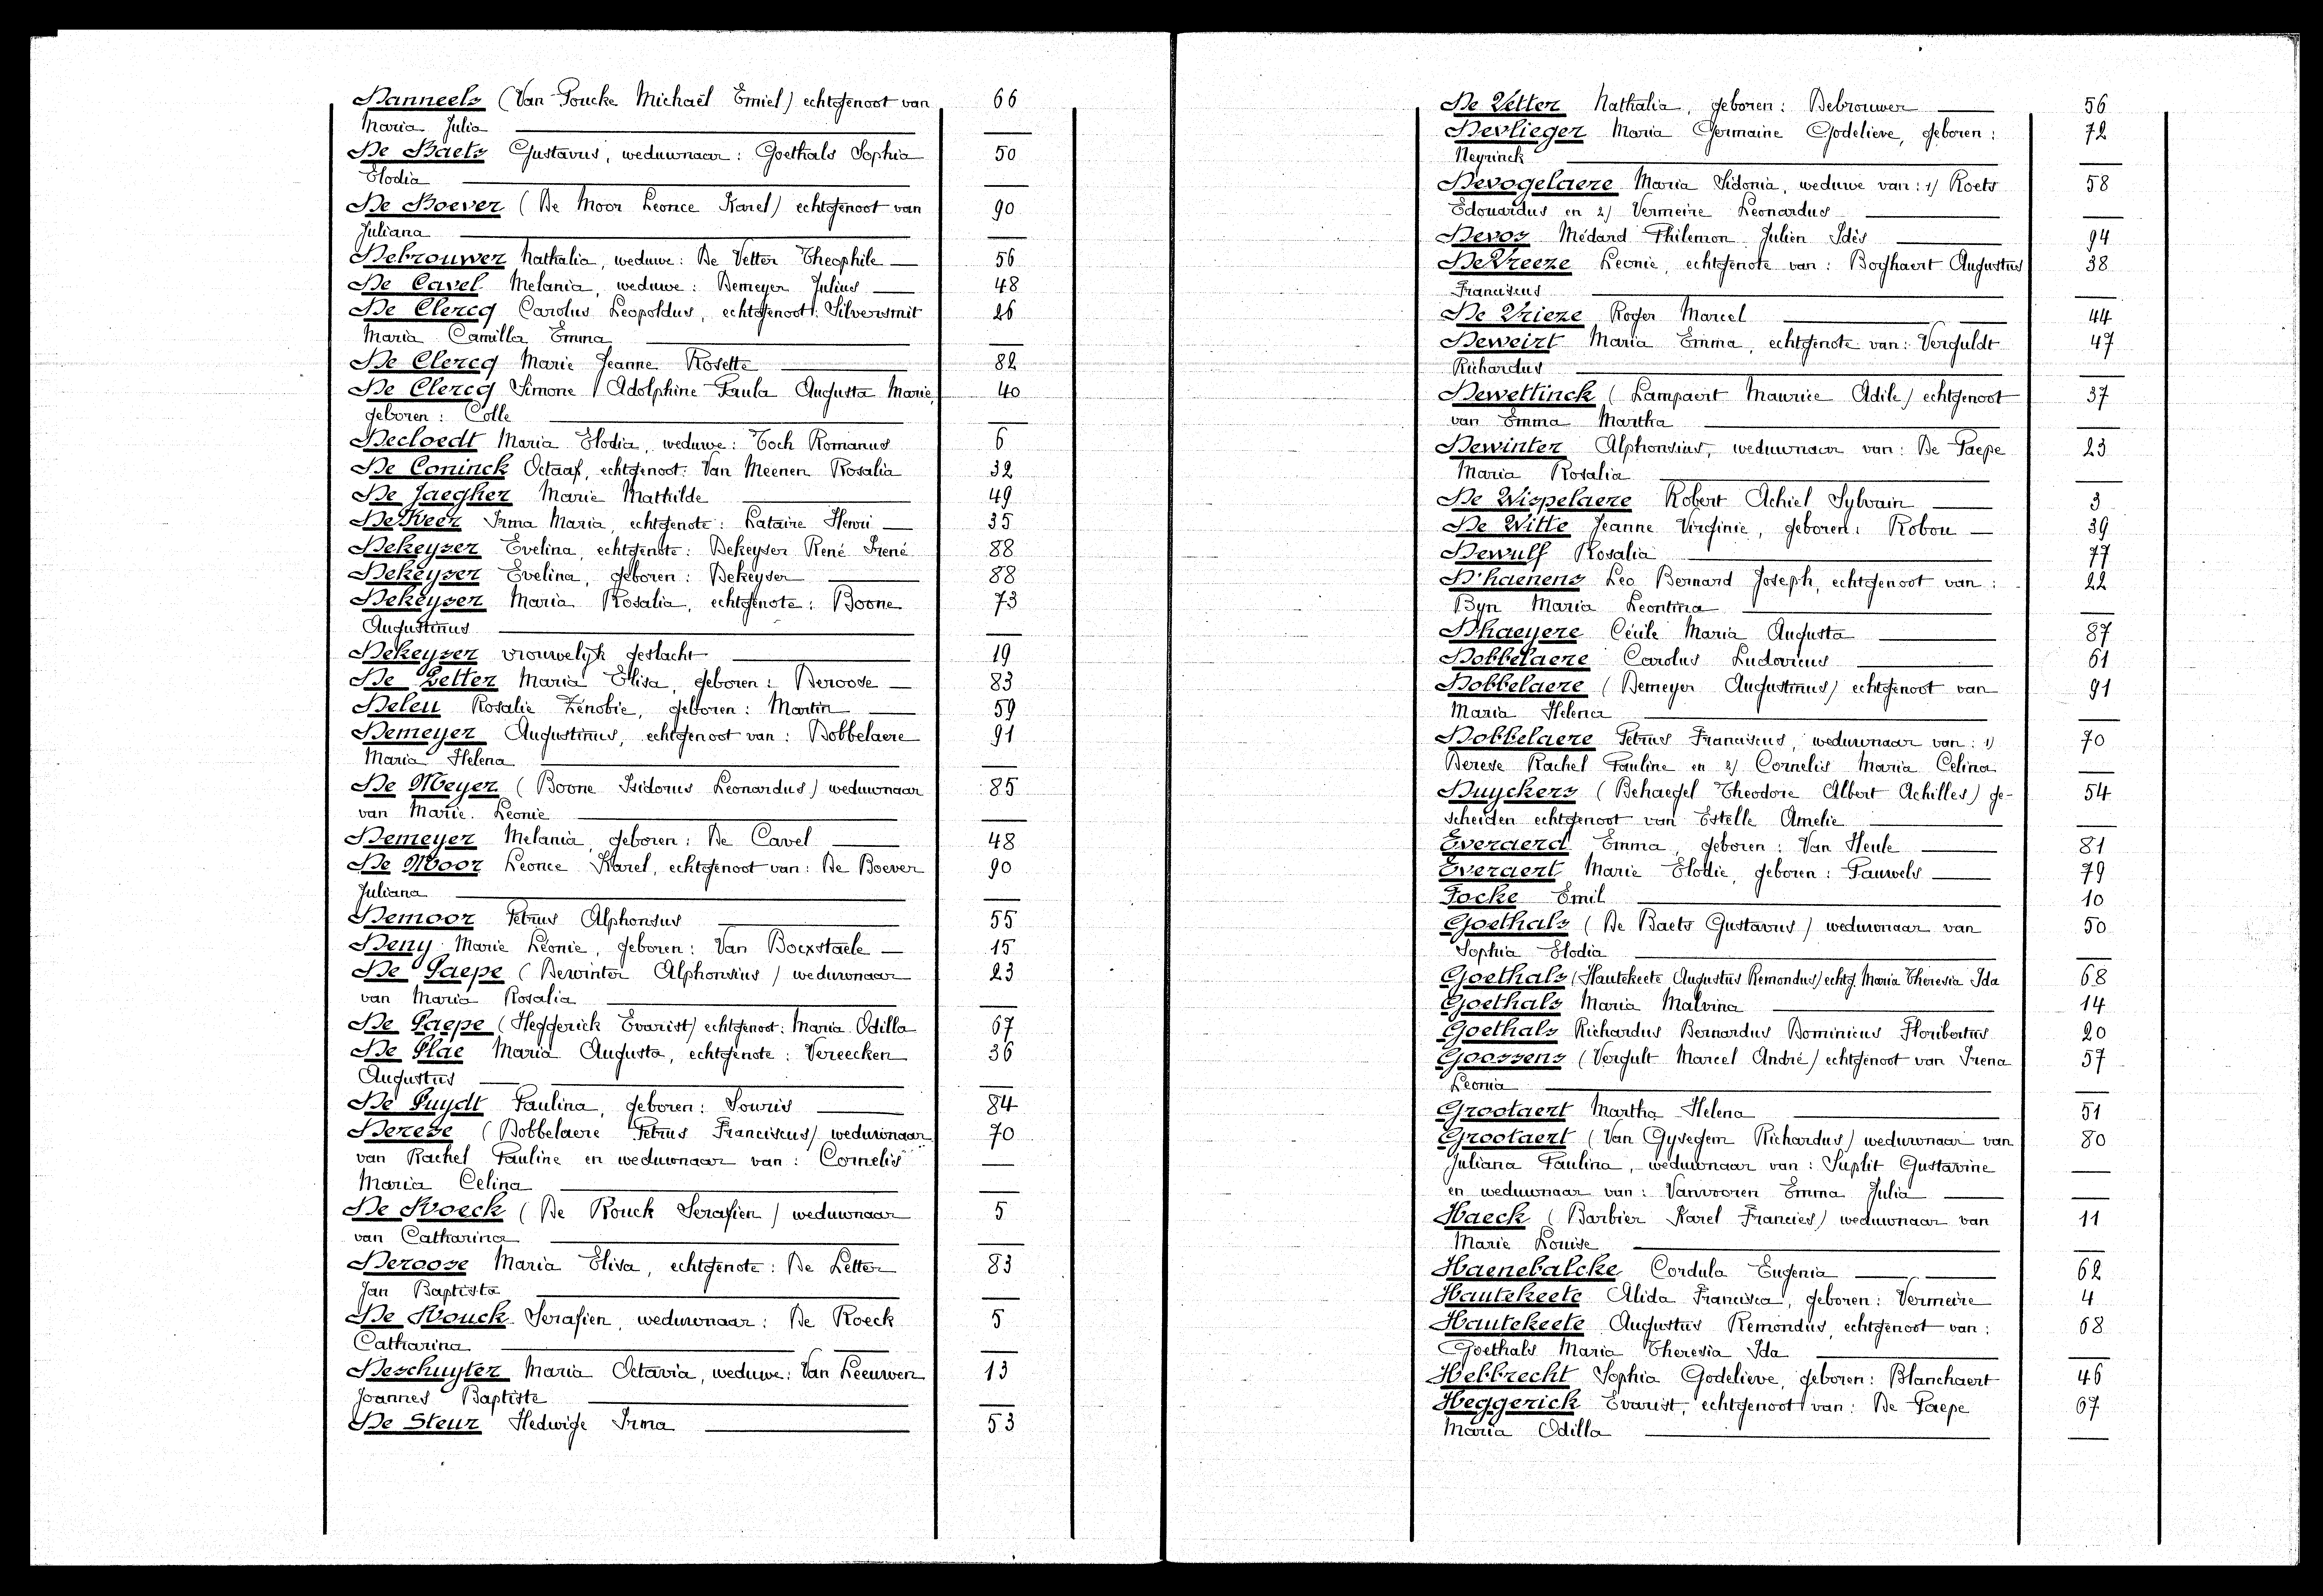 Danneels (Van Poucke Michaël Emiel) echtgenoot van 66
Maria Julia
De Baets Gustavus, weduwnaar: Goethals Sophia 50
Elodia
De Boever (De Moor Leonce Karel) echtgenoot van 90
Juliana
Debrouwer Nathalia, weduwe: De Vetter Theophile 56
De Cavel Melania, weduwe: Demeyer Julius 48
De Clercq Carolus Leopoldus, echtgenoot: Silversmit 26
Maria Camilla Emma
De Clercq Marie Jeanne Rosette 82
De Clercq Simone Adolphine Paula Augusta Marie, 40
geboren: Colle
Decloedt Maria Elodia, weduwe: Toch Romanus 6
De Coninck Octaaf, echtgenoot: Van Meenen Rosalia 32
De Jaegher Marie Mathilde 49
De Keer Irma Maria, echtgenote: Lataire Henri 35
Dekeyser Evelina, echtgenote: Dekeyser René Irené 88
Dekeyser Evelina, geboren: Dekeyser 88
Dekeyser Maria Rosalia, echtgenote: Boone 73
Augustinus
Dekeyser vrouwelijk geslacht 19
De Letter Maria Elisa, geboren: Deroose 83
Deleu Rosalie Zénobie, geboren: Martin 59
Demeyer Augustinus, echtgenoot van: Dobbelaere 91
Maria Helena
De Meyer (Boone Isidorus Leonardus) weduwnaar 85
van Marie. Leonie
Demeyer Melania, geboren: De Cavel 48
De Moor Leonce Karel, echtgenoot van: De Boever 90
Juliana
Demoor Petrus Alphonsus 55
Deny Marie Léonie, geboren: Van Boexstaele 15
De Paepe (Dewinter Alphonsius) weduwnaar 23
van Maria Rosalia
De Paepe (Heggerick Evarist) echtgenoot: Maria Odilla 67
De Plae Maria Augusta, echtgenote: Vereecken 36
Augustus
De Puydt Paulina, geboren: Souris 84
Derese (Dobbelaere Petrus Franciscus) weduwnaar 70
van Rachel Pauline en weduwnaar van: Cornelis
Maria Celina
De Roeck (De Rouck Serafien) weduwnaar 5
van Catharina
Deroose Maria Elisa, echtgenote: De Letter 83
Jan Baptista
De Rouck Serafien, weduwnaar: De Roeck 5
Catharina
Deschuyter Maria Octavia, weduwe: Van Leeuwen 13
Joannes Baptiste
De Steur Hedwige Irma 53
De Vetter Nathalia, geboren: Debrouwer 56
Devlieger Maria Germaine Godelieve, geboren: 72
Neyrinck
Devogelaere Maria Sidonia, weduwe van: 1) Roets 58
Edouardus en 2) Vermeire Leonardus
Devos Médard Philemon Julien Idès 94
De Vreeze Leonie, echtgenote van: Boghaert Augustus 38
Franciscus
De Vrieze Roger Marcel 44
Deweirt Maria Emma, echtgenote van: Verguldt 47
Richardus
Dewettinck (Lampaert Maurice Adile) echtgenoot 37
van Emma Martha
Dewinter Alphonsius, weduwnaar van: De Paepe 23
Maria Rosalia
De Wispelaere Robert Achiel Sylvain 3
De Witte Jeanne Virginie, geboren: Robou 39
Dewulf Rosalia 77
D'haenens Leo Bernard Joseph, echtgenoot van: 22
Byn Maria Leontina
Dhaeyere Cécile Maria Augusta 87
Dobbelaere Carolus Ludovicus 61
Dobbelaere (Demeyer Augustinus) echtgenoot van 91
Maria Helena
Dobbelaere Petrus Franciscus, weduwnaar van: 1) 70
Derese Rachel Pauline en 2) Cornelis Maria Celina
Duyckers (Behaegel Theodore Albert Achilles) ge- 54
scheiden echtgenoot van Estelle Amelie
Everaerd Emma, geboren: Van Heule 81
Everaert Marie Elodie, geboren: Pauwels 79
Focke Emil 10
Goethals (De Baets Gustavus) weduwnaar van 50
Sophia Elodia
Goethals (Hautekeete Augustus Remondus) echtg. Maria Theresia Ida 68
Goethals Maria Malvina 14
Goethals Richardus Bernardus Dominicus Floribertus 20
Goossens (Vergult Marcel André) echtgenoot van Irena 57
Leonia
Grootaert Martha Helena 51
Grootaert (Van Gysegem Richardus) weduwnaar van 80
Juliana Paulina, weduwnaar van: Suplit Gustavine
en weduwnaar van: Vanvooren Emma Julia
Haeck (Barbier Karel Francies) weduwnaar van 11
Marie Louise
Haenebalcke Cordula Eugenia 62
Hautekeete Alida Francisca, geboren: Vermeire 4
Hautekeete Augustus Remondus, echtgenoot van: 68
Goethals Maria Theresia Ida
Hebbrecht Sophia Godelieve, geboren: Blanchaert 46
Heggerick Evarist, echtgenoot van: De Paepe 67
Maria Odilla